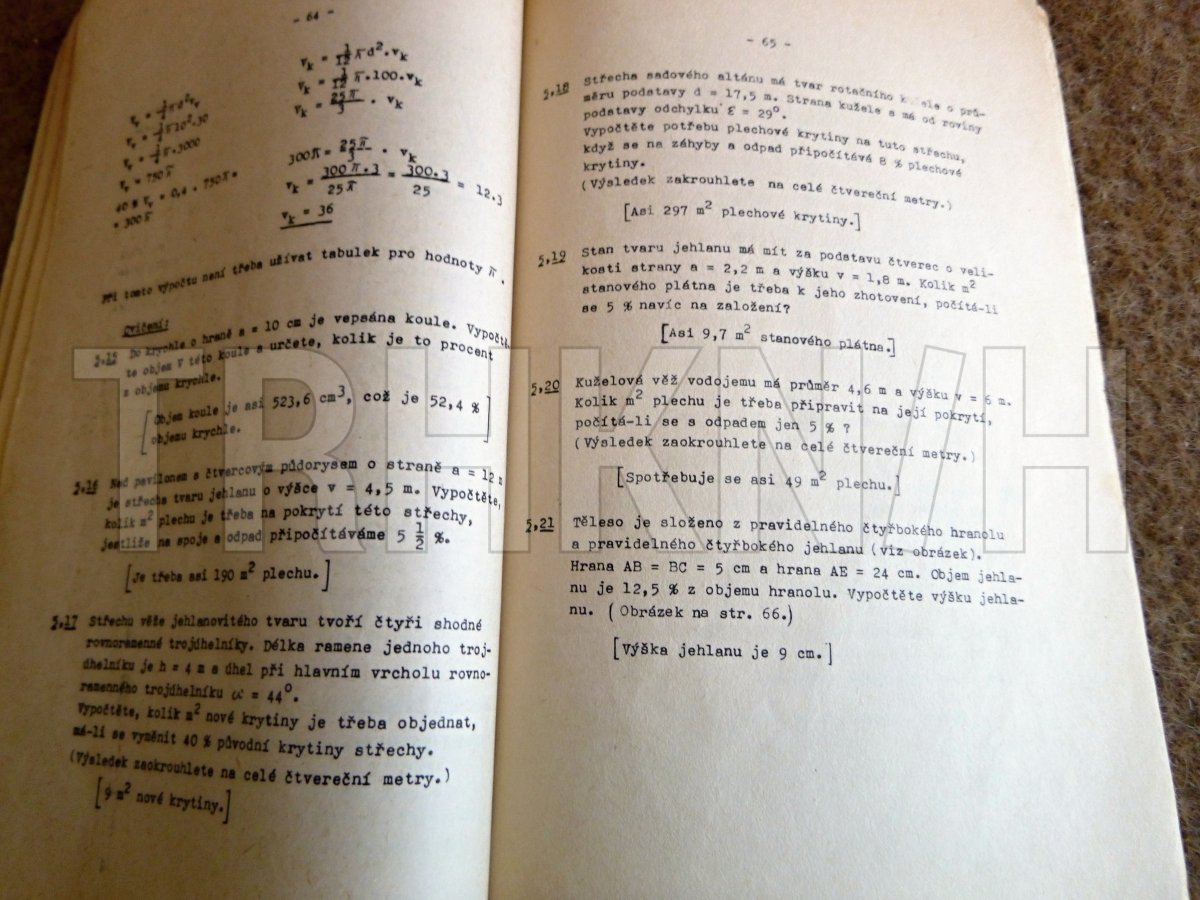 - 64 -
v_k = 1/12 π d².v_k
v_k = 1/12 π.100.v_k
v_k = 25π/3 . v_k
v_v = 1/4 π d² v_v
v_v = 1/4 π 10².30
v_v = 1/4 π.3000
v_v = 750 π
40 % v_v = 0,4 . 750 π =
= 300 π
300 π = 25π/3 . v_k
v_k = 300 π.3/25 π = 300.3/25 = 12.3
v_k = 36
Při tomto výpočtu není třeba užívat tabulek pro hodnoty π .
Cvičení:
5,15 Do krychle o hraně a = 10 cm je vepsána koule. Vypočtě-
te objem V této koule a určete, kolik je to procent
z objemu krychle.
[Objem koule je asi 523,6 cm³, což je 52,4 %
objemu krychle.]
5,16 Nad pavilonem s čtvercovým půdorysem o straně a = 12 m
je střecha tvaru jehlanu o výšce v = 4,5 m. Vypočtěte,
kolik m² plechu je třeba na pokrytí této střechy,
jestliže na spoje a odpad připočítáváme 5 1/2 %.
[Je třeba asi 190 m² plechu.]
5,17 Střechu věže jehlanovitého tvaru tvoří čtyři shodné
rovnoramenné trojúhelníky. Délka ramene jednoho troj-
úhelníku je h = 4 m a úhel při hlavním vrcholu rovno-
ramenného trojúhelníku α = 44°.
Vypočtěte, kolik m² nové krytiny je třeba objednat,
má-li se vyměnit 40 % původní krytiny střechy.
(Výsledek zaokrouhlete na celé čtvereční metry.)
[9 m² nové krytiny.]
- 65 -
5,18 Střecha sadového altánu má tvar rotačního kužele o prů-
měru podstavy d = 17,5 m. Strana kužele s má od roviny
podstavy odchylku ε = 29°.
Vypočtěte potřebu plechové krytiny na tuto střechu,
když se na záhyby a odpad připočítává 8 % plechové
krytiny.
(Výsledek zakrouhlete na celé čtvereční metry.)
[Asi 297 m² plechové krytiny.]
5,19 Stan tvaru jehlanu má mít za podstavu čtverec o veli-
kosti strany a = 2,2 m a výšku v = 1,8 m. Kolik m²
stanového plátna je třeba k jeho zhotovení, počítá-li
se 5 % navíc na založení?
[Asi 9,7 m² stanového plátna.]
5,20 Kuželová věž vodojemu má průměr 4,6 m a výšku v = 6 m.
Kolik m² plechu je třeba připravit na její pokrytí,
počítá-li se s odpadem jen 5 % ?
(Výsledek zaokrouhlete na celé čtvereční metry.)
[Spotřebuje se asi 49 m² plechu.]
5,21 Těleso je složeno z pravidelného čtyřbokého hranolu
a pravidelného čtyřbokého jehlanu (viz obrázek).
Hrana AB = BC = 5 cm a hrana AE = 24 cm. Objem jehla-
nu je 12,5 % z objemu hranolu. Vypočtěte výšku jehla-
nu. (Obrázek na str. 66.)
[Výška jehlanu je 9 cm.]
TRHKNIH